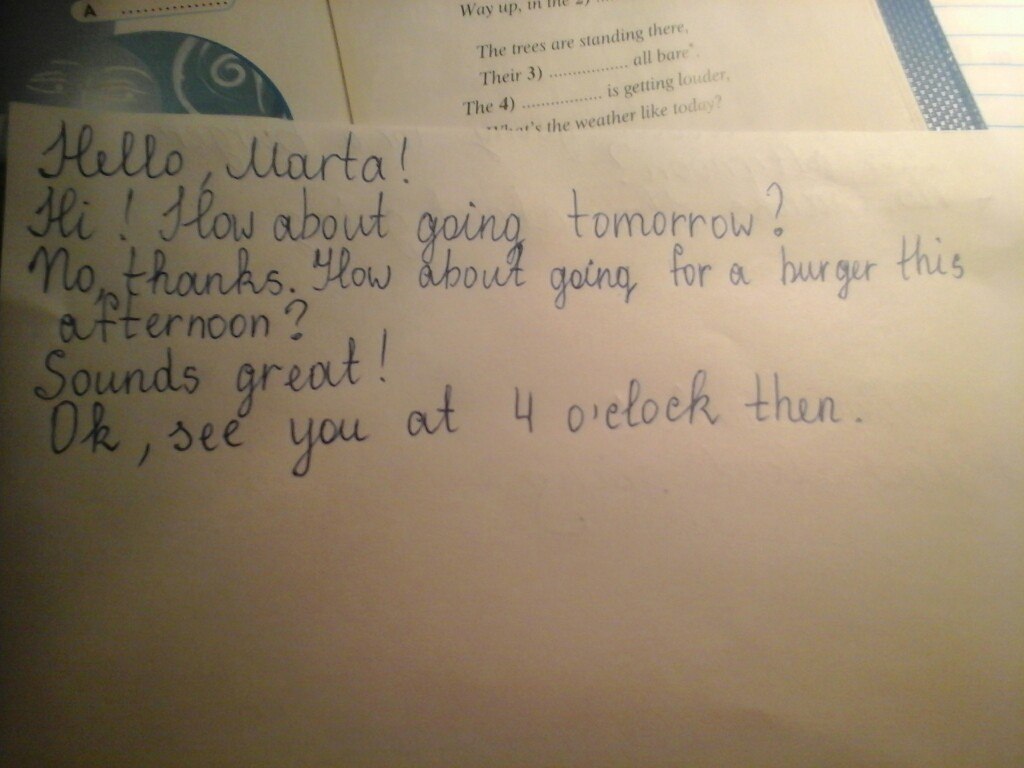 A ..................
Way up, in the 2)
The trees are standing there,
Their 3) .................. all bare*.
The 4) .................. is getting louder,
What's the weather like today?
Hello, Marta!
Hi! How about going tomorrow?
No, thanks. How about going for a burger this
afternoon?
Sounds great!
Ok, see you at 4 o'clock then.